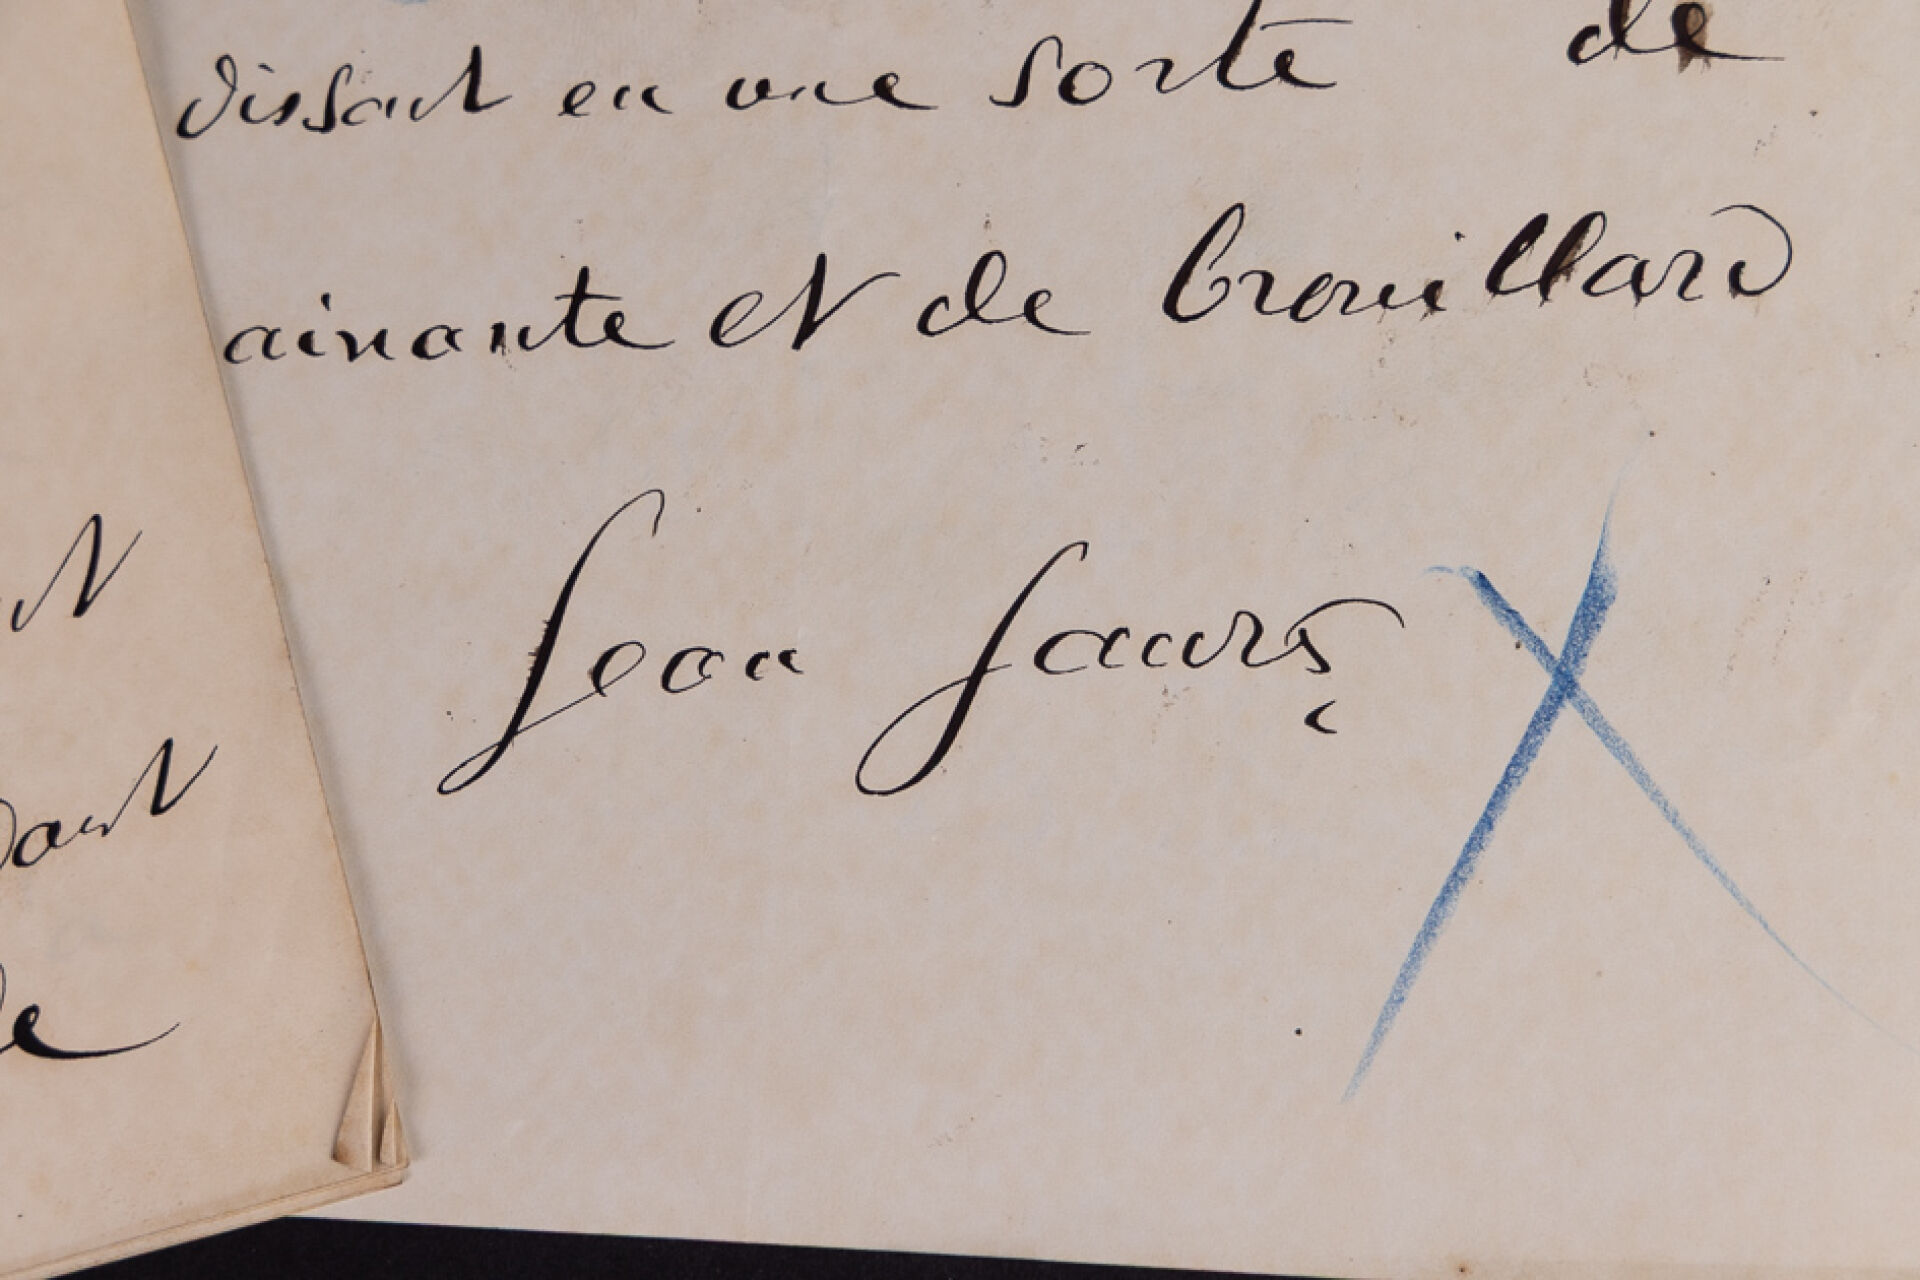 dissant en une sorte de
ainante et de brouillard
Jean Jaurès
dant
de